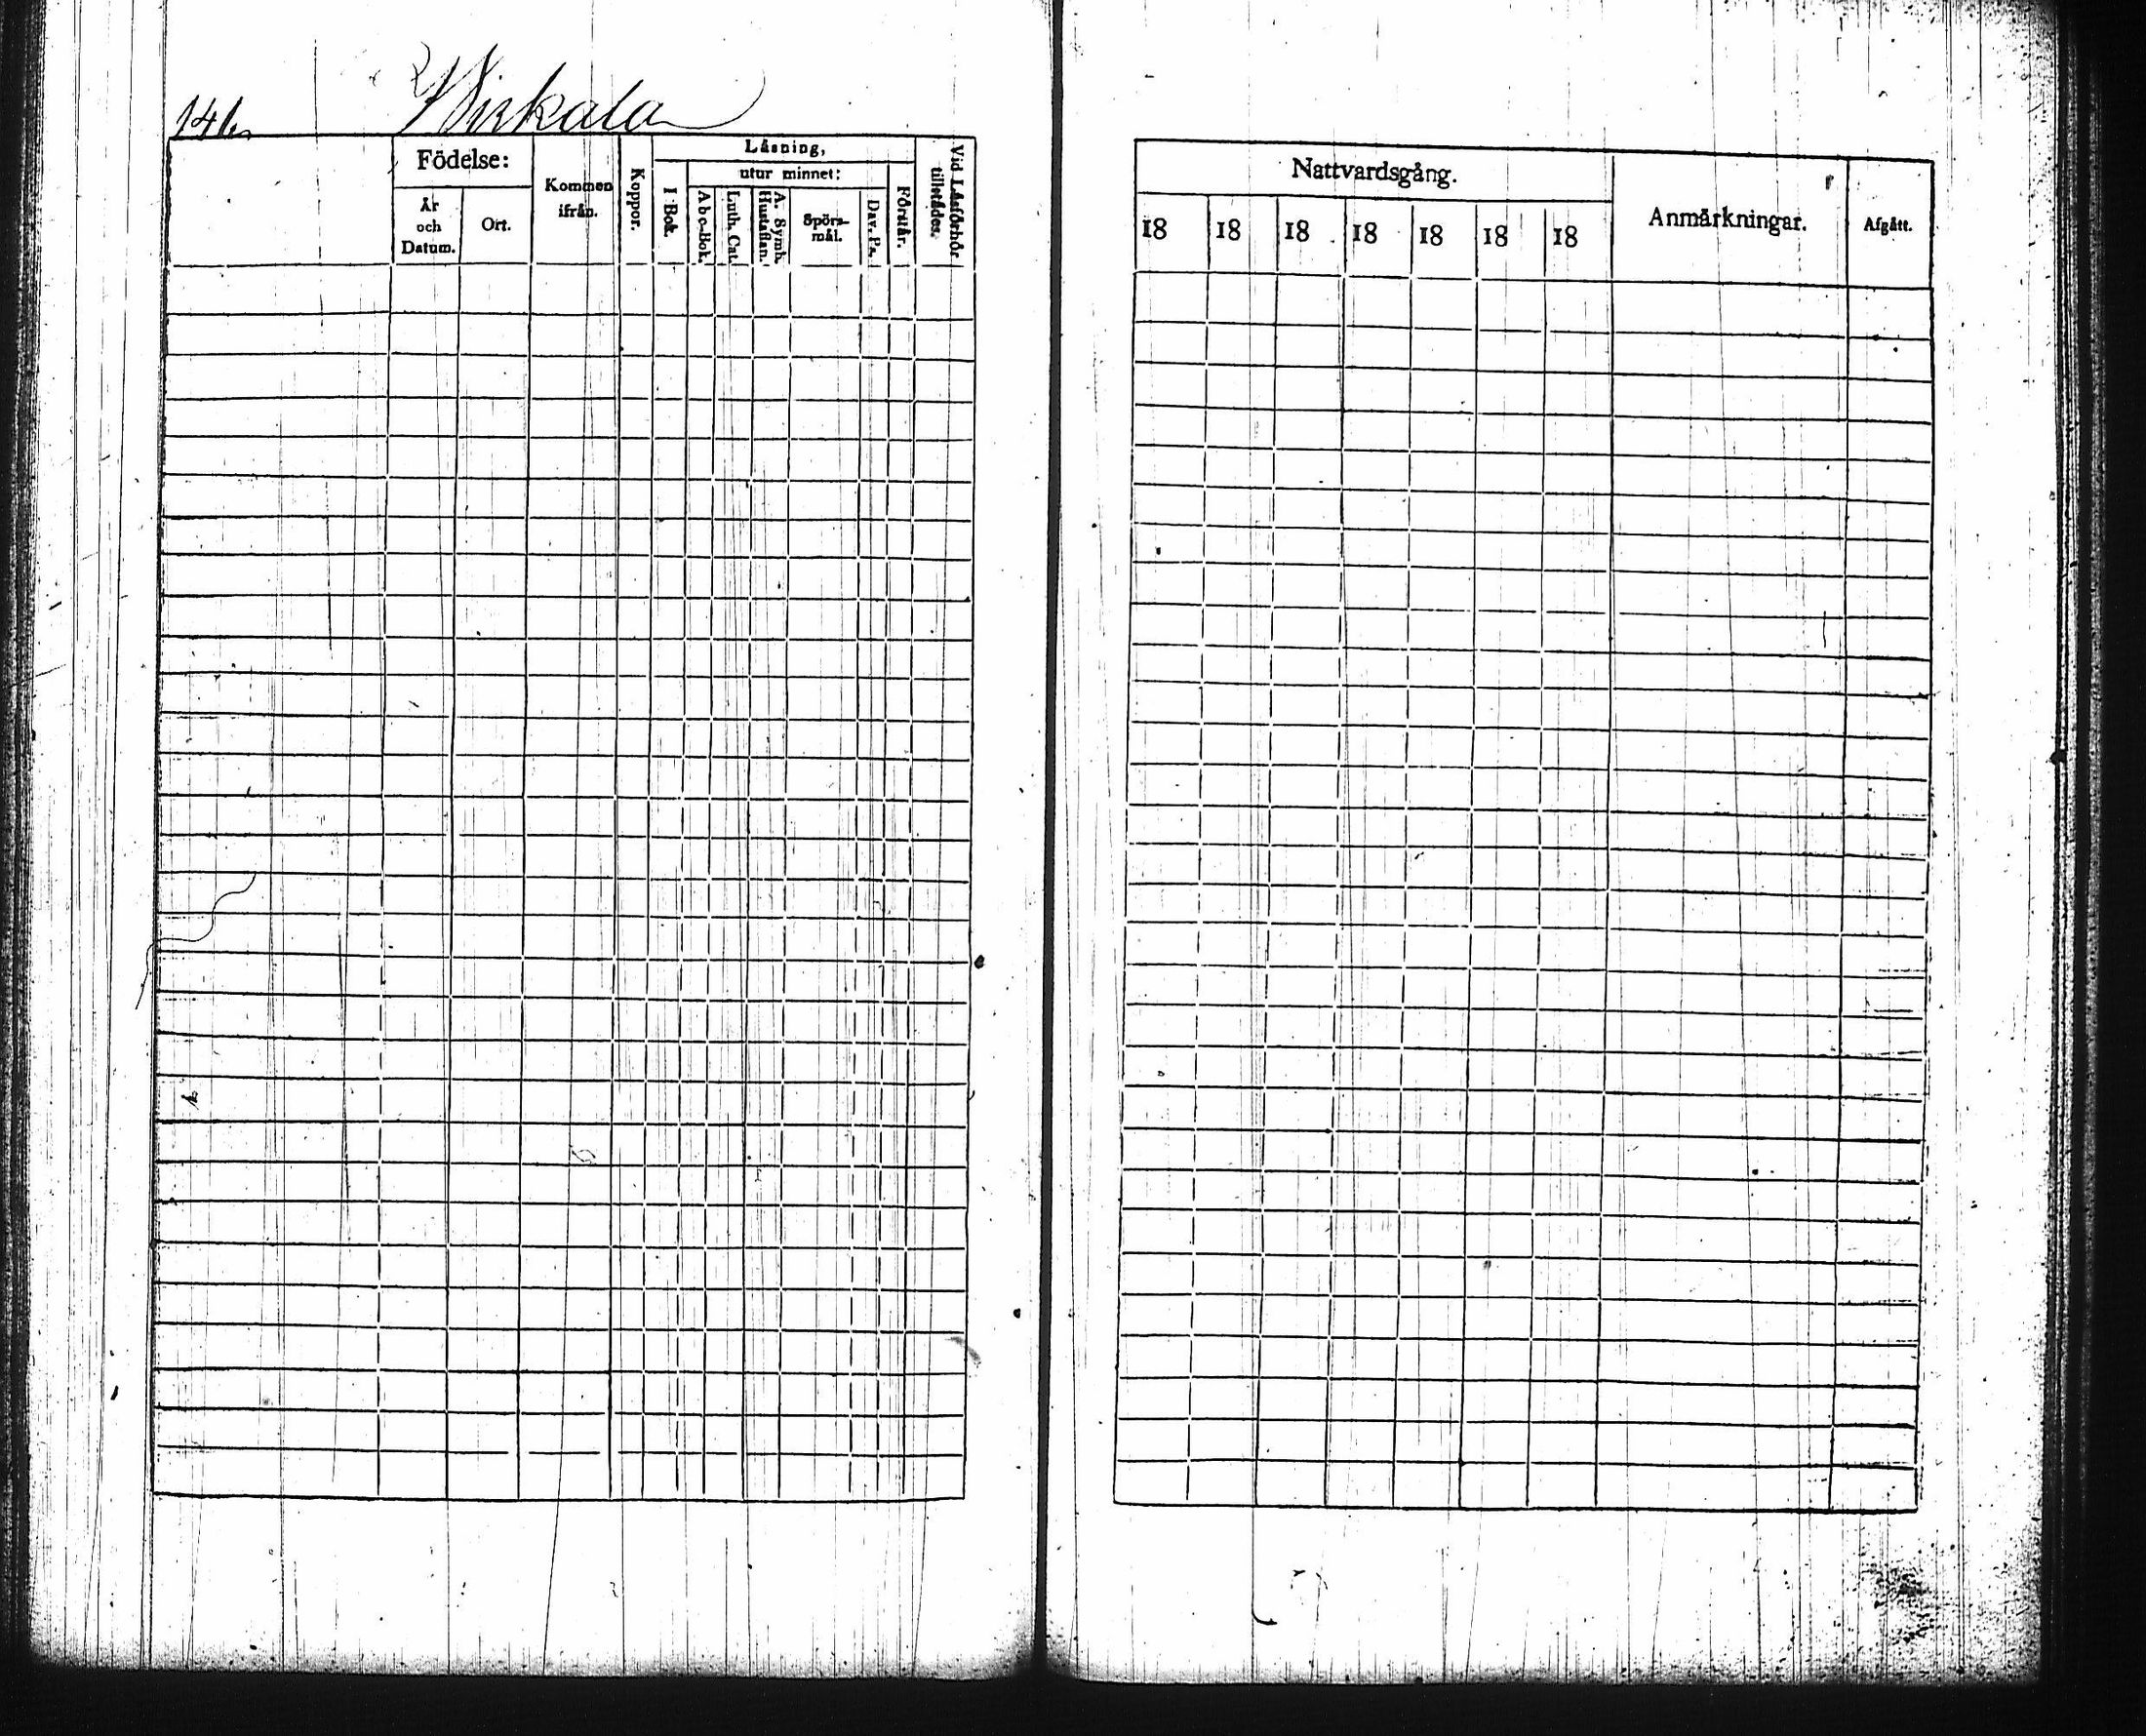 146. Wirkala
Födelse:
År
och
Datum.
Ort.
Kommen
ifrån.
Koppor.
Läsning,
I Bok.
utur minnet:
Abc-Bok.
Luth. Cat.
A. Symb.
Hustaflan.
Spörs-
mål.
Dav. Ps.
Förstår.
Vid Läsförhör
tillstädes.
Nattvardsgång.
18 18 18 18 18 18 18
Anmärkningar.
Afgått.